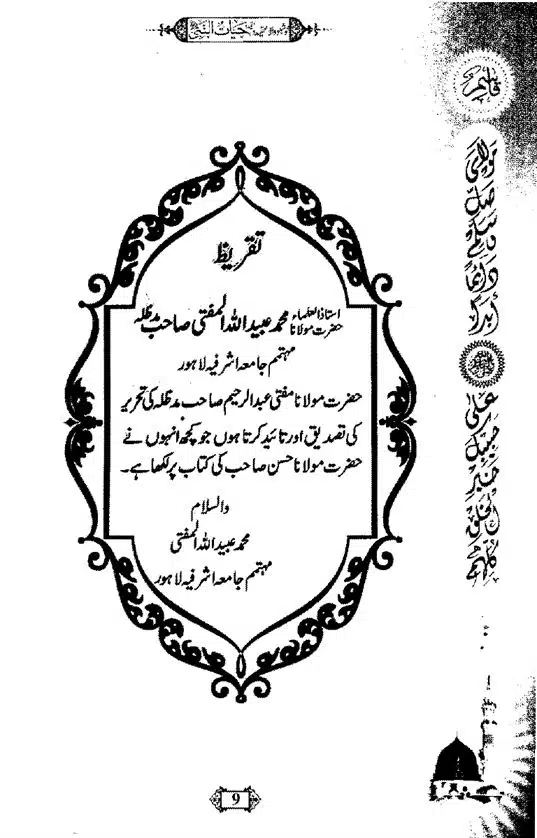 حیات النبیؐ
تقریظ
استاذ العلماء حضرت مولانا محمد عبید اللہ المفتی صاحب مدظلہ
مہتمم جامعہ اشرفیہ لاہور
حضرت مولانا مفتی عبدالرحیم صاحب مدظلہ کی تحریر
کی تصدیق اور تائید کرتا ہوں جو کچھ انہوں نے
حضرت مولانا حسن صاحب کی کتاب پر لکھا ہے۔
والسلام
محمد عبید اللہ المفتی
مہتمم جامعہ اشرفیہ لاہور
مولای صل وسلم دائما ابدا
علی حبیبک خیر الخلق کلہم
9